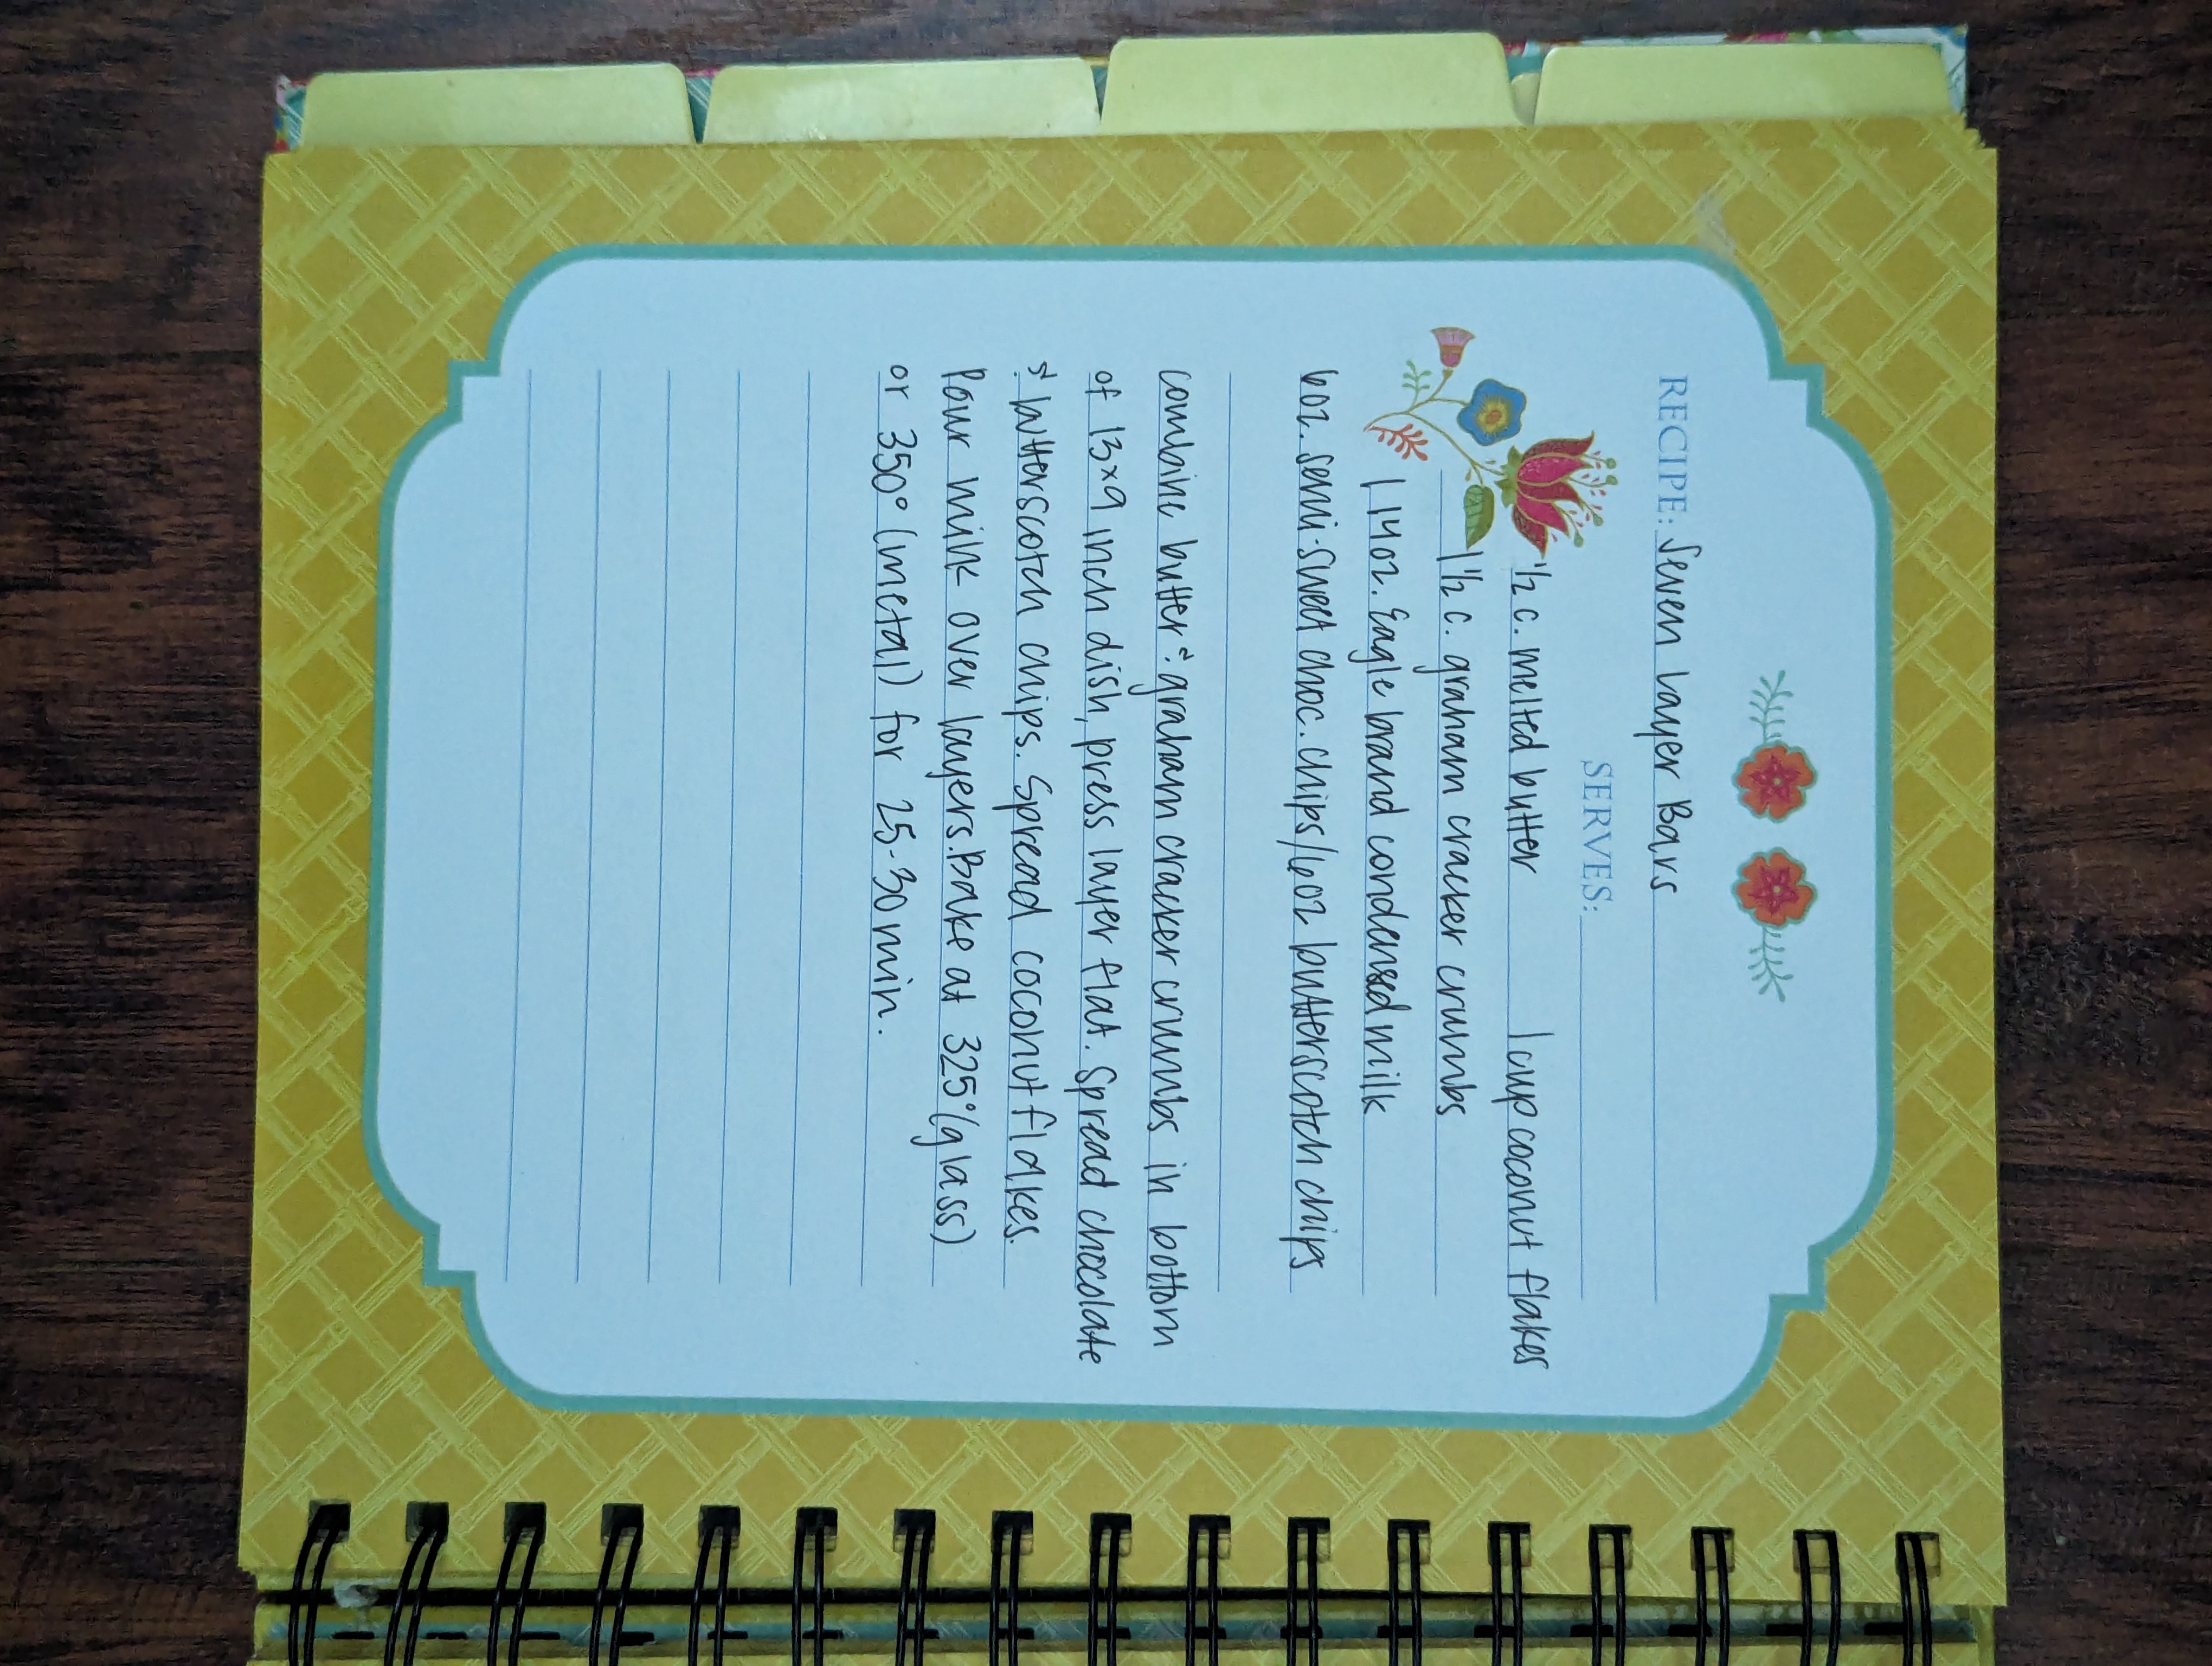 RECIPE: Seven Layer Bars
SERVES:
1/2 c. melted butter 1 cup coconut flakes
1 1/2 c. graham cracker crumbs
1 14oz. Eagle brand condensed milk
6oz. semi-sweet choc. chips/6oz butterscotch chips
Combine butter & graham cracker crumbs in bottom
of 13x9 inch dish, press layer flat. Spread chocolate
& butterscotch chips. Spread coconut flakes.
Pour milk over layers. Bake at 325° (glass)
or 350° (metal) for 25-30 min.